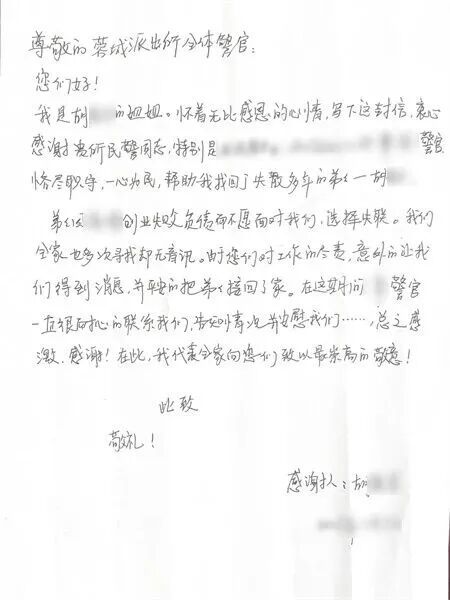 尊敬的蓉城派出所全体警官：
您们好！
我是胡 的姐姐。怀着无比感恩的心情，写下这封信，衷心
感谢贵所民警同志，特别是 警官
恪尽职守，一心为民，帮助我找回了失散多年的弟弟胡
弟弟 创业失败负债而不愿面对我们，选择失联。我们
全家也多次寻找却无音讯。由于您们对工作的尽责，意外的让我
们得到消息，并平安的把弟弟接回了家。在这期间 警官
一直很耐心的联系我们，告知情况并安慰我们……，总之感
激、感谢！在此，我代表全家向您们致以最崇高的敬意！
此致
敬礼！
感谢人：胡